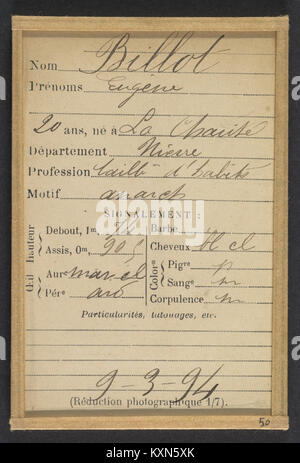 Nom Billot
Prénoms Eugène
20 ans, né à La Charité
Département Nièvre
Profession taillr d'habits
Motif anarch
SIGNALEMENT :
Œil Hauteur
Debout, 1m,
Assis, 0m, 90
Aure mar cl
Pére
Barbe
Cheveux bl cl
Color°
Pigre
Sang°
Corpulence m
Particularités, tatouages, etc.
9-3-94
(Réduction photographique 1/7).
50
alamy
Image ID: KXN5XK
www.alamy.com